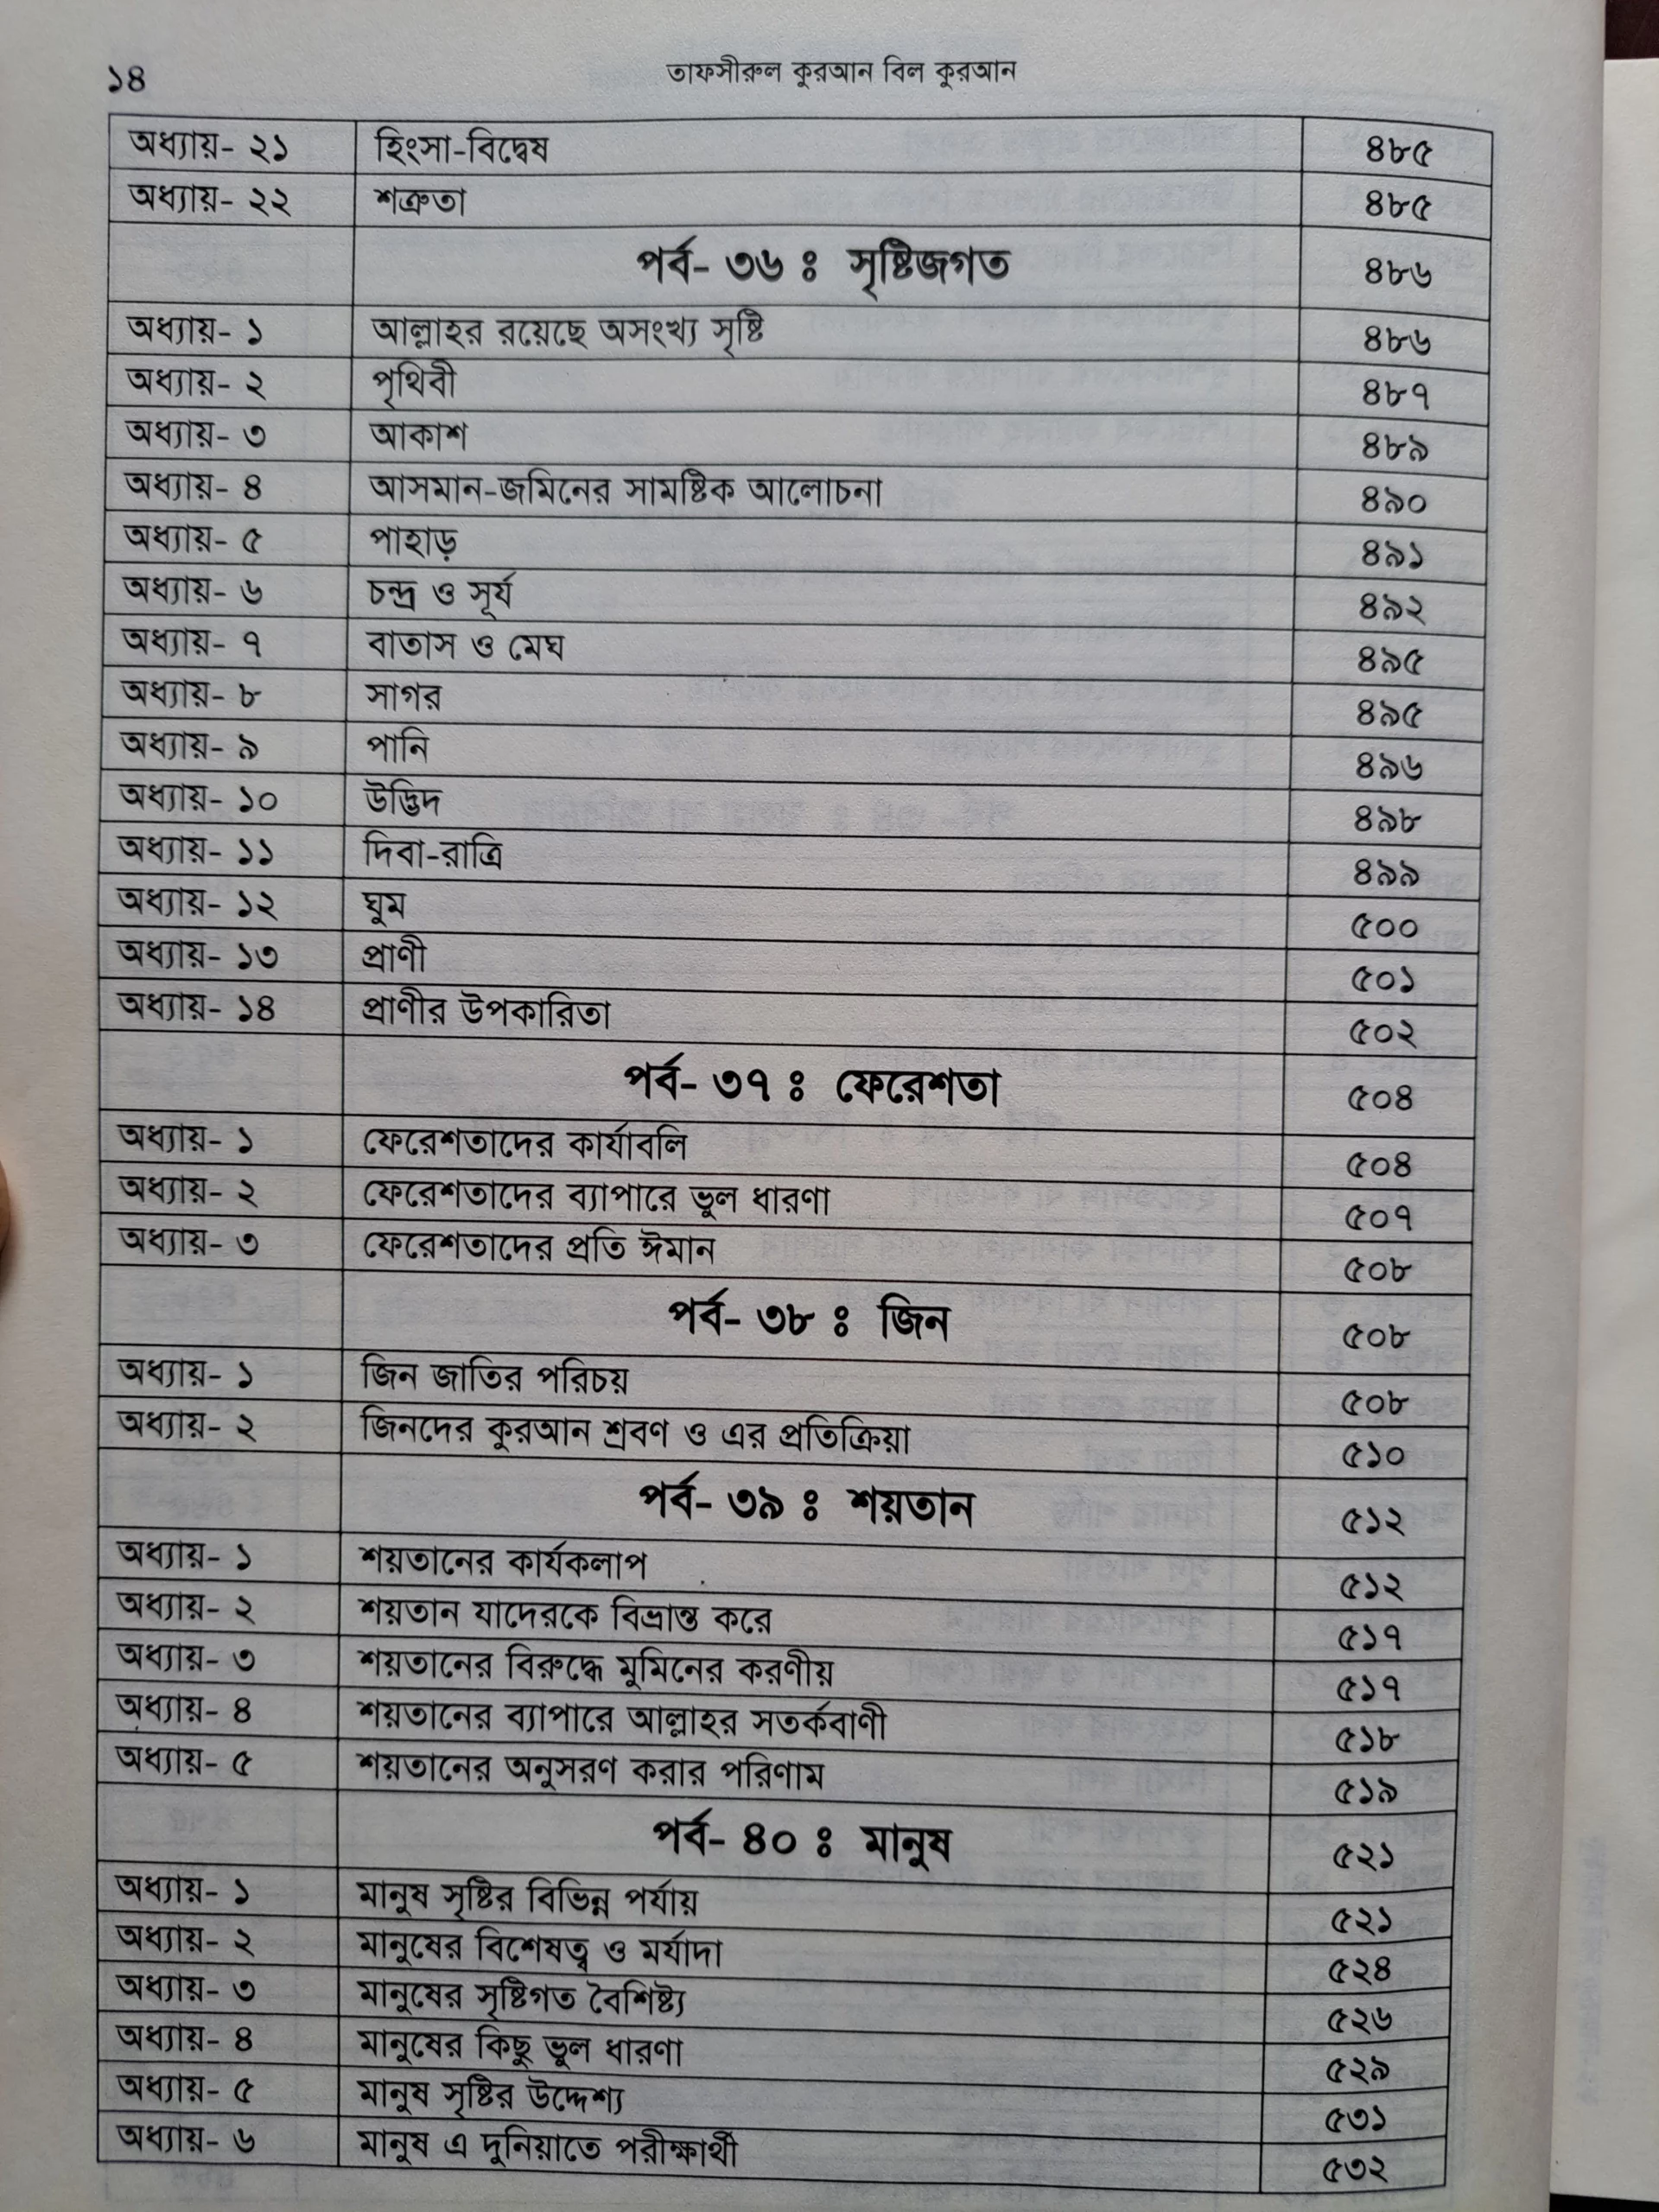 ১৪
তাফসীরুল কুরআন বিল কুরআন
অধ্যায়- ২১ হিংসা-বিদ্বেষ ৪৮৫
অধ্যায়- ২২ শত্রুতা ৪৮৫
পর্ব- ৩৬ ঃ সৃষ্টিজগত ৪৮৬
অধ্যায়- ১ আল্লাহর রয়েছে অসংখ্য সৃষ্টি ৪৮৬
অধ্যায়- ২ পৃথিবী ৪৮৭
অধ্যায়- ৩ আকাশ ৪৮৯
অধ্যায়- ৪ আসমান-জমিনের সামষ্টিক আলোচনা ৪৯০
অধ্যায়- ৫ পাহাড় ৪৯১
অধ্যায়- ৬ চন্দ্র ও সূর্য ৪৯২
অধ্যায়- ৭ বাতাস ও মেঘ ৪৯৫
অধ্যায়- ৮ সাগর ৪৯৫
অধ্যায়- ৯ পানি ৪৯৬
অধ্যায়- ১০ উদ্ভিদ ৪৯৮
অধ্যায়- ১১ দিবা-রাত্রি ৪৯৯
অধ্যায়- ১২ ঘুম ৫০০
অধ্যায়- ১৩ প্রাণী ৫০১
অধ্যায়- ১৪ প্রাণীর উপকারিতা ৫০২
পর্ব- ৩৭ ঃ ফেরেশতা ৫০৪
অধ্যায়- ১ ফেরেশতাদের কার্যাবলি ৫০৪
অধ্যায়- ২ ফেরেশতাদের ব্যাপারে ভুল ধারণা ৫০৭
অধ্যায়- ৩ ফেরেশতাদের প্রতি ঈমান ৫০৮
পর্ব- ৩৮ ঃ জিন ৫০৮
অধ্যায়- ১ জিন জাতির পরিচয় ৫০৮
অধ্যায়- ২ জিনদের কুরআন শ্রবণ ও এর প্রতিক্রিয়া ৫১০
পর্ব- ৩৯ ঃ শয়তান ৫১২
অধ্যায়- ১ শয়তানের কার্যকলাপ ৫১২
অধ্যায়- ২ শয়তান যাদেরকে বিভ্রান্ত করে ৫১৭
অধ্যায়- ৩ শয়তানের বিরুদ্ধে মুমিনের করণীয় ৫১৭
অধ্যায়- ৪ শয়তানের ব্যাপারে আল্লাহর সতর্কবাণী ৫১৮
অধ্যায়- ৫ শয়তানের অনুসরণ করার পরিণাম ৫১৯
পর্ব- ৪০ ঃ মানুষ ৫২১
অধ্যায়- ১ মানুষ সৃষ্টির বিভিন্ন পর্যায় ৫২১
অধ্যায়- ২ মানুষের বিশেষত্ব ও মর্যাদা ৫২৪
অধ্যায়- ৩ মানুষের সৃষ্টিগত বৈশিষ্ট্য ৫২৬
অধ্যায়- ৪ মানুষের কিছু ভুল ধারণা ৫২৯
অধ্যায়- ৫ মানুষ সৃষ্টির উদ্দেশ্য ৫৩১
অধ্যায়- ৬ মানুষ এ দুনিয়াতে পরীক্ষার্থী ৫৩২